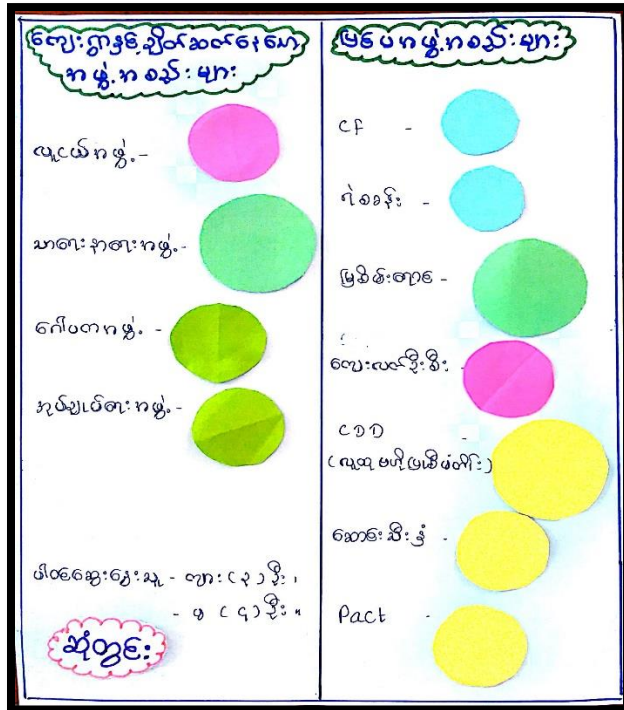 ကျေးရွာနှင့်ချိတ်ဆက်နေသော
အဖွဲ့အစည်းများ
လူငယ်အဖွဲ့ -
သာရေးနာရေးအဖွဲ့ -
ဂေါပကအဖွဲ့ -
အုပ်ချုပ်ရေးအဖွဲ့ -
ပါဝင်ဆွေးနွေးသူ - ကျား (၃) ဦး ၊
- မ (၄) ဦး ။
ဆုံတွင်း
ပြင်ပအဖွဲ့အစည်းများ
CF -
ရဲစခန်း -
မြစိမ်းရောင် -
ကျေးလက်ဦးစီး -
CDD -
(လူထုဗဟိုပြုစီမံကိန်း)
Pact -